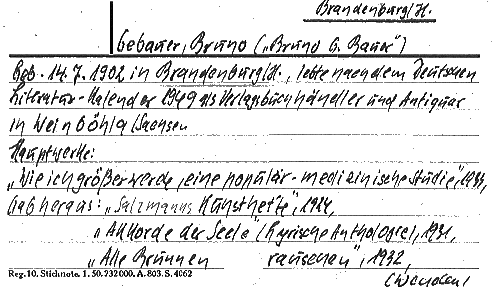 Brandenburg/H.
Gebauer, Bruno („Bruno G. Bauer“)
Geb. 14.7.1902 in Brandenburg/H., lebte nach dem Deutschen
Literatur-Kalender 1949 als Verlagsbuchhändler und Antiquar
in Weinböhla/Sachsen
Hauptwerke:
„Wie ich größer werde, eine populär-medizinische Studie“, 1931,
Gab heraus: „Salzmanns Kunsthefte“, 1924,
„Akkorde der Seele“ (Lyrische Anthologie), 1931,
„Alle Brunnen rauschen“, 1932,
Reg.10. Stichnote. 1. 50. 732000. A. 803. S. 4062
(wenden!